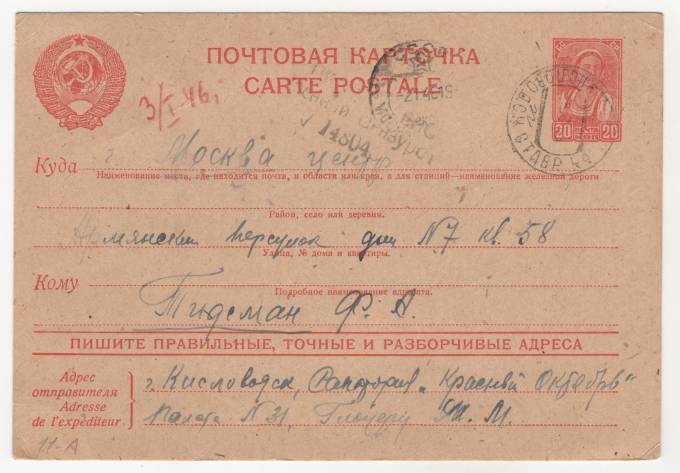 ПОЧТОВАЯ КАРТОЧКА
CARTE POSTALE
3/I-46.
14804
Куда
г Москва центр
Наименование места, где находится почта, и области или края, а для станций—наименование железной дороги
Район, село или деревня.
Армянский переулок дом N7 кв. 58
Улица, № дома и квартиры.
Кому
Подробное наименование адресата.
Тидеман Ф. А.
20 20
ПИШИТЕ ПРАВИЛЬНЫЕ, ТОЧНЫЕ И РАЗБОРЧИВЫЕ АДРЕСА
Адрес отправителя
Adresse de l'expéditeur
г. Кисловодск, Санатория „Красный Октябрь"
Палата N 31, Т. М.
11-А